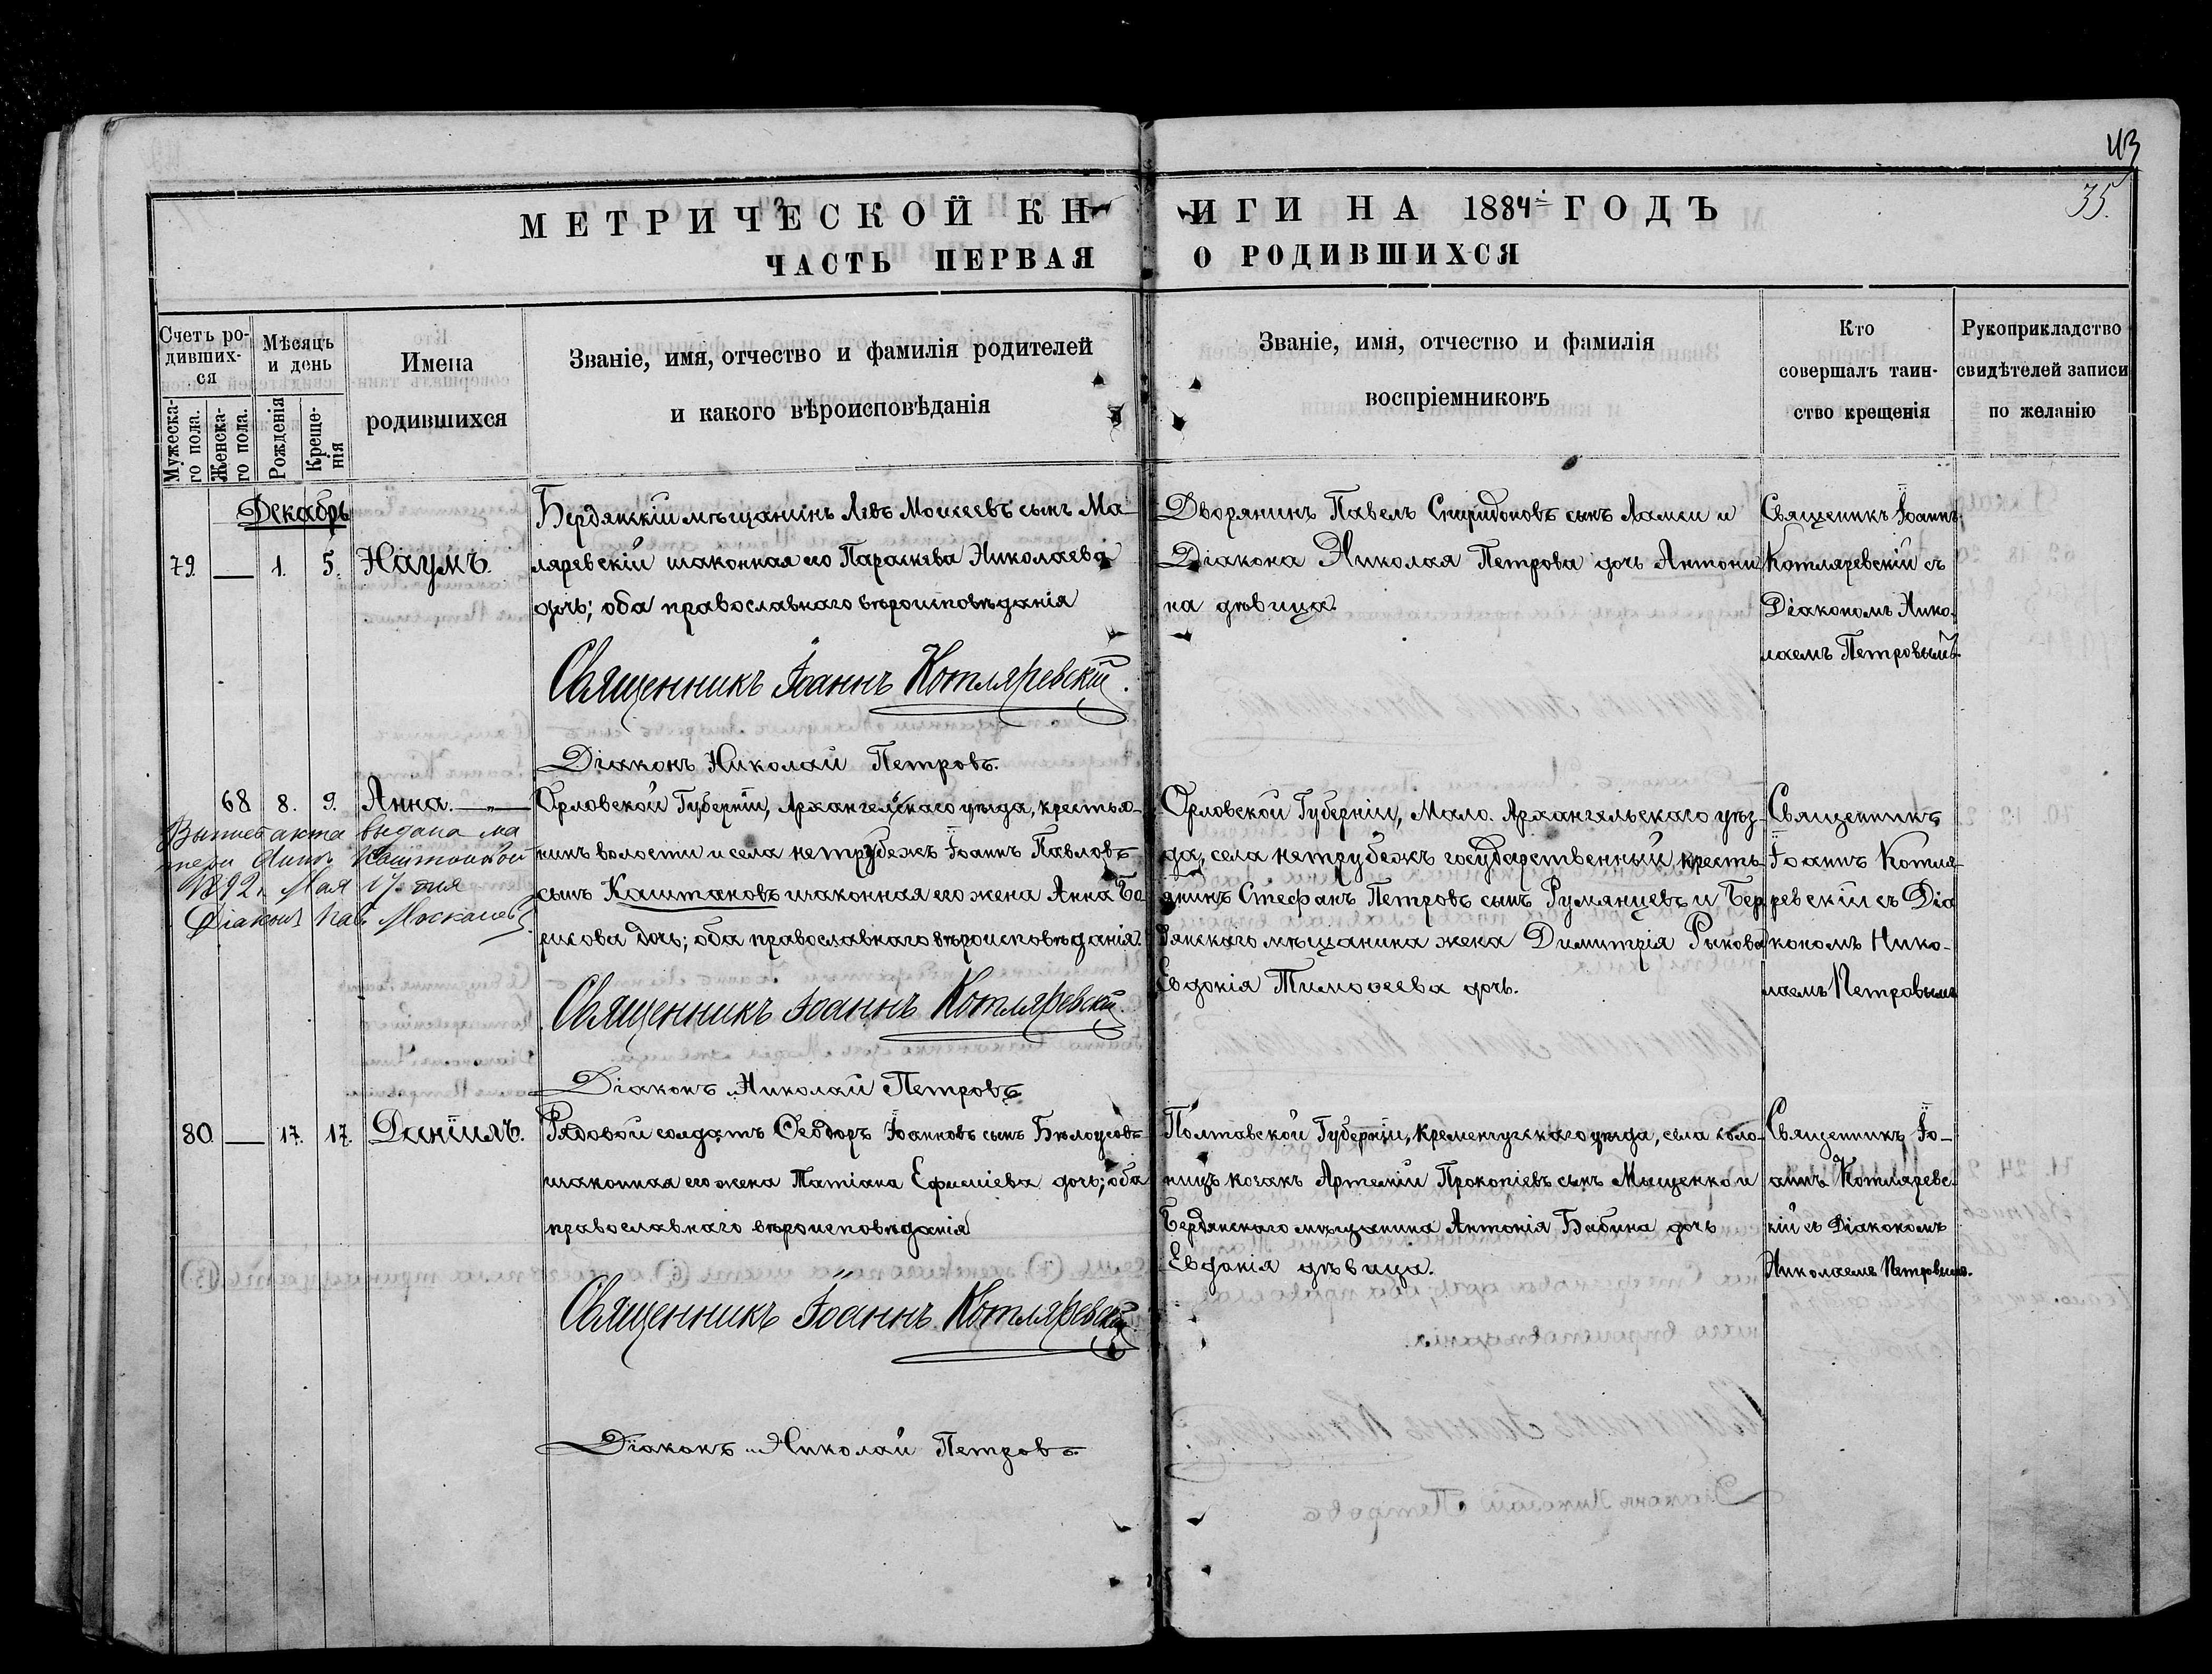 43
35.
МЕТРИЧЕСКОЙ КНИГИ НА 1884й ГОДЪ
ЧАСТЬ ПЕРВАЯ О РОДИВШИХСЯ
Счетъ ро-
дивших-
ся
Мужеска-
го пола.
Женска-
го пола.
Мѣсяцъ
и день
Рожденія
Креще-
нія
Имена
родившихся
Званіе, имя, отчество и фамилія родителей
и какого вѣроисповѣданія
Званіе, имя, отчество и фамилія
воспріемниковъ
Кто
совершалъ таин-
ство крещенія
Рукоприкладство
свидѣтелей записи
по желанію
Декабрь
79. — 1. 5. Наумъ.
Бердянскій мѣщанинъ Левъ Моисеевъ сынъ Ма-
ляревскій и законная его Параскева Николаева
дочь; оба православнаго вѣроисповѣданія
Священникъ Іоаннъ Котляревскій.
Діаконъ Николай Петровъ.
Дворянинъ Павелъ Спиридоновъ сынъ Ламси и
Діакона Николая Петрова дочь Антони
на дѣвица.
Священникъ Іоаннъ
Котляревскій съ
Діакономъ Нико-
лаемъ Петровымъ.
68 8. 9. Анна.
Выпись акта выдана ма
тери Аннѣ Каштановой
1892 г. Мая 17 дня
Діаконъ Пав.
Орловской Губерніи, Архангельскаго уѣзда, крестья-
нинъ волости и села Нетрубежъ Іоаннъ Павловъ
сынъ Каштановъ и законная его жена Анна Бо
рисова дочь; оба православнаго вѣроисповѣданія.
Священникъ Іоаннъ Котляревскій.
Діаконъ Николай Петровъ
Орловской Губерніи, Мало-Архангельскаго уѣз-
да, села Нетрубежъ государственный кресть
янинъ Стефанъ Петровъ сынъ Румянцевъ и Бер
дянскаго мѣщанина жена Димитрія Рыкова
Евдокія Тимоѳеева дочь.
Священникъ
Іоаннъ Котля-
ревскій съ Діа
кономъ Нико-
лаемъ Петровымъ
80 — 17. 17. Даніилъ.
Рядовой солдатъ Ѳеодоръ Іоанновъ сынъ Бѣлоусовъ
и законная его жена Татіана Ефиміева дочь; оба
православнаго вѣроисповѣданія
Священникъ Іоаннъ Котляревскій.
Діаконъ Николай Петровъ
Полтавской Губерніи, Кременчугскаго уѣзда, села Соло-
ницъ козакъ Артемій Прокопіевъ сынъ Мащенко и
Бердянскаго мѣщанина Антонія Бабина дочь
Евдокія дѣвица.
Священникъ Іо-
аннъ Котляревс-
кій съ Діакономъ
Николаемъ Петровымъ.